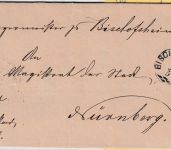 germeister zu Bischofsheim
An
Magistrat der Stadt
Nürnberg.
BISC